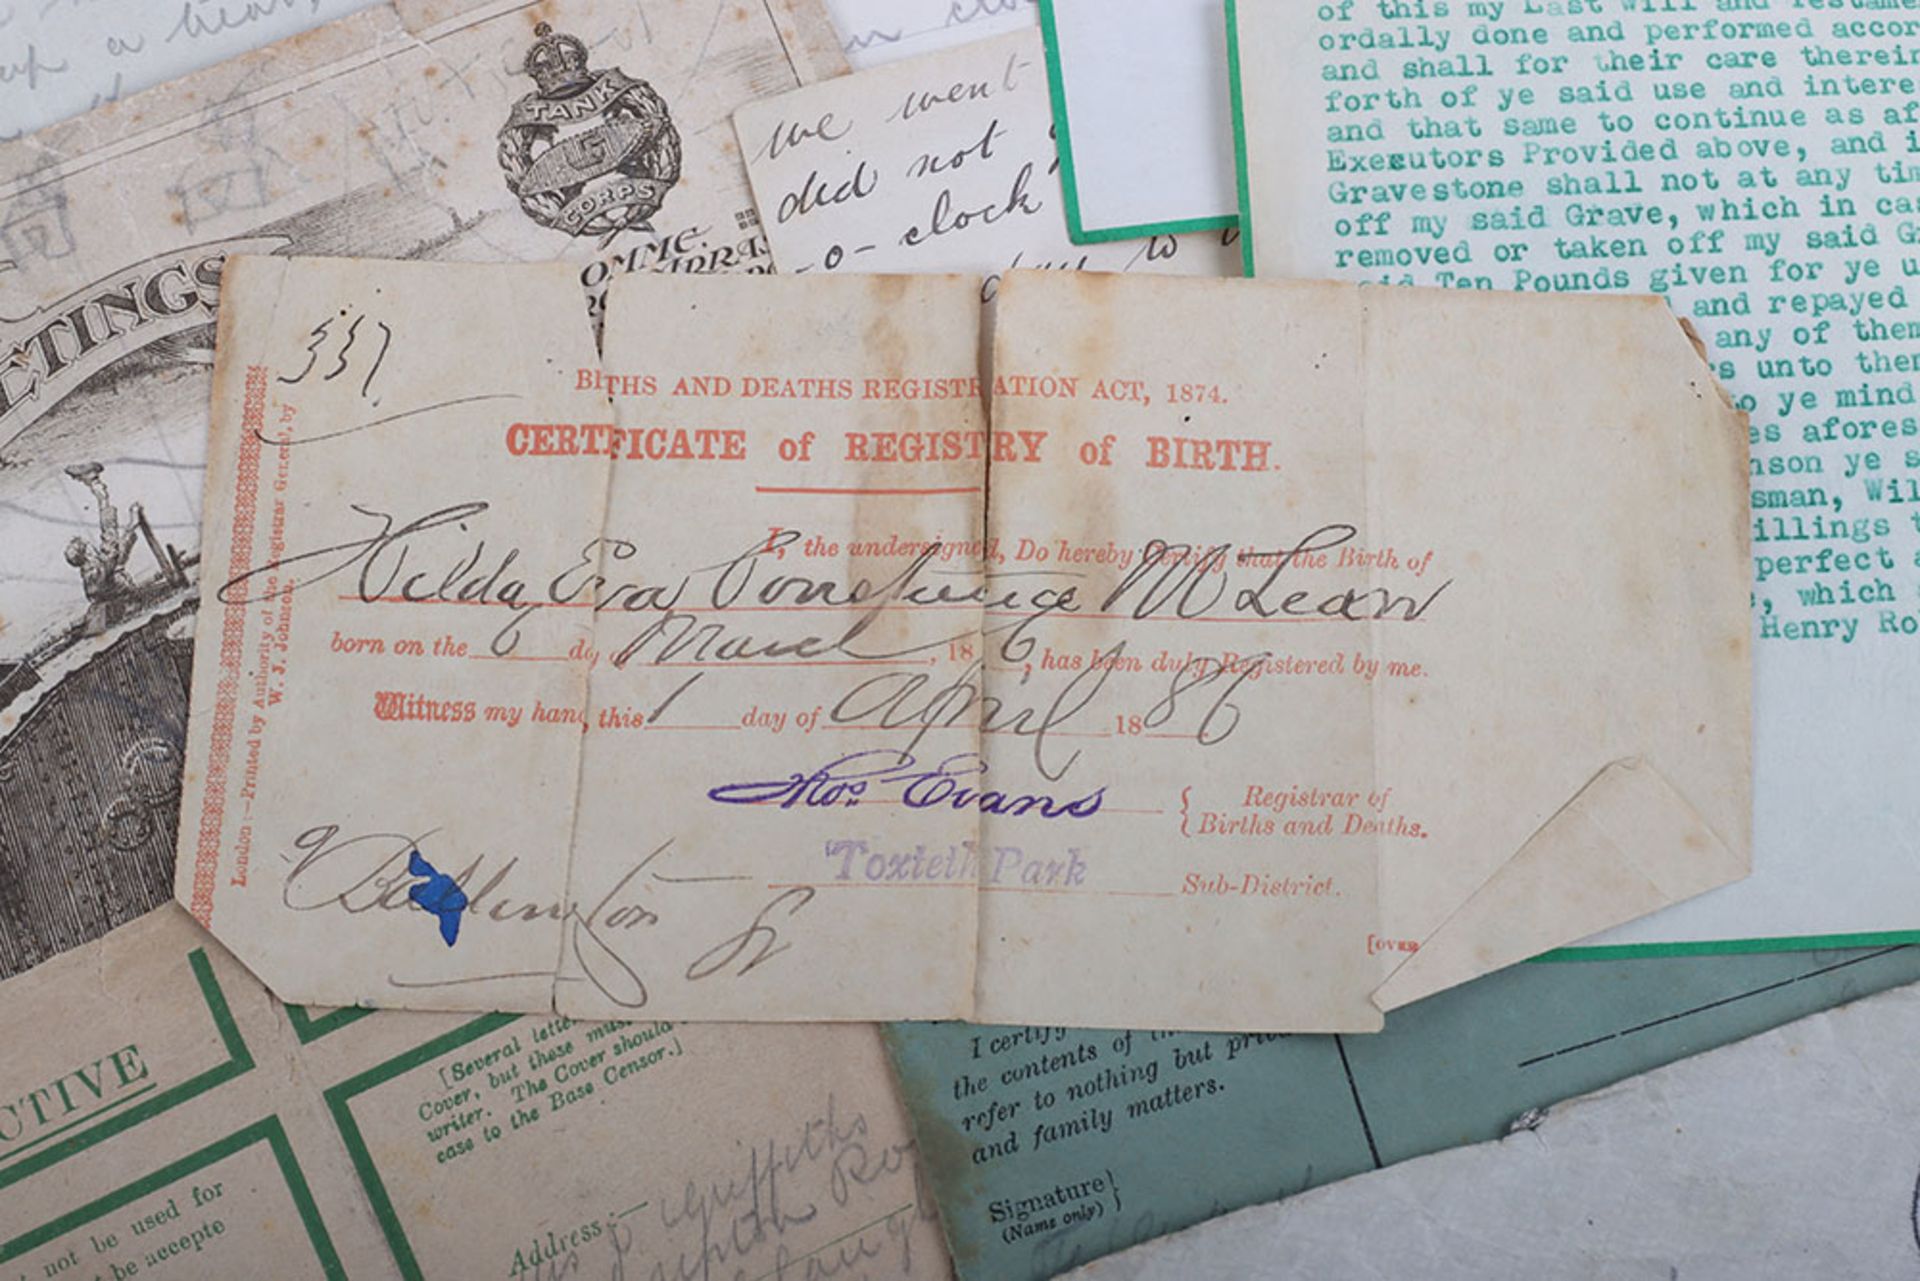 TANK
CORPS
ETINGS
we went
did not
-o-clock
of this my Last Will and
ordally done and performed accor
and shall for their care therein
forth of ye said use and intere
and that same to continue as af
Executors Provided above, and i
Gravestone shall not at any tim
off my said Grave, which in cas
removed or taken off my said G
Ten Pounds given for ye u
and repayed
any of them
s unto them
ye mind
es afores
nson ye s
sman, Wil
illings t
perfect a
, which
Henry Ro
337
BIRTHS AND DEATHS REGISTRATION ACT, 1874.
CERTIFICATE of REGISTRY of BIRTH.
I, the undersigned, Do hereby Certify that the Birth of
Hilda Eva Constance McLean
born on the 6 day of March, 1886, has been duly Registered by me.
Witness my hand, this 1 day of April 1886
Thos Evans
Registrar of
Births and Deaths.
Toxteth Park
Sub-District.
[OVER
London:—Printed by Authority of the Registrar General, by
W. J. Johnson.
9
St
CTIVE
[Several lette
Cover, but these mus
writer. The Cover should
case to the Base Censor.]
not be used for
be accepte
Address:—
Griffiths
I certify
the contents of th
refer to nothing but priv
and family matters.
Signature
(Name only)